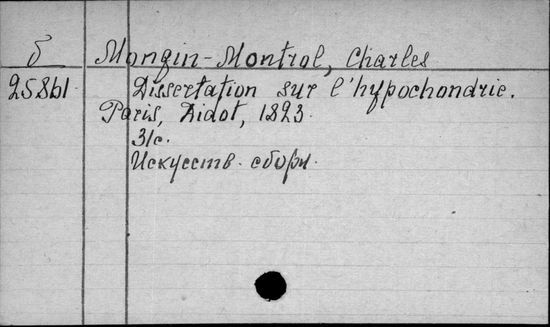 б Mongin-Montrol, Charles
25861 Dissertation sur l'hypochondrie.
Paris, Didot, 1823.
31c.
Искусств. сборн.